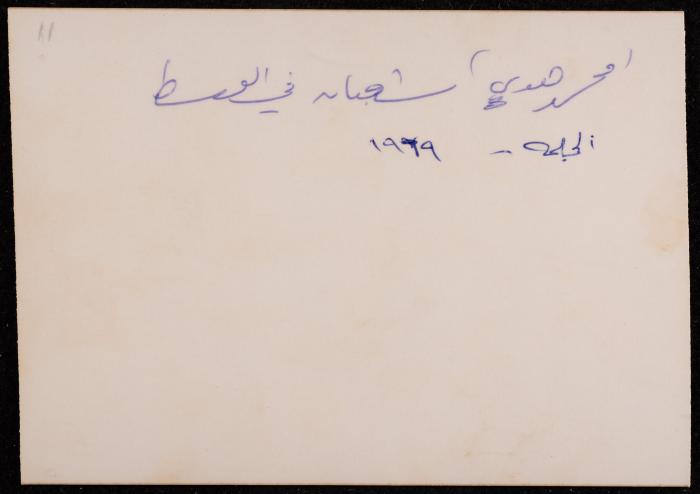 11
محمد هندي شعبان في الوسط
الجلمة - ١٩٦٩